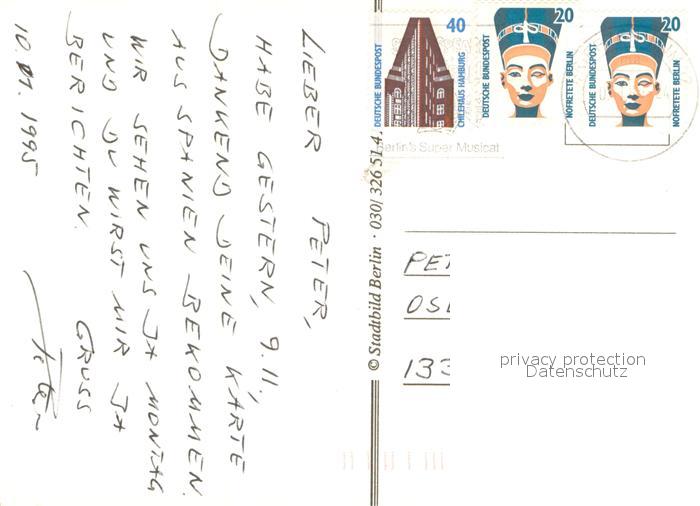 LIEBER PETER,
HABE GESTERN, 9.11,
DANKEND DEINE KARTE
AUS SPANIEN BEKOMMEN.
WIR SEHEN UNS JA MONTAG
UND DU WIRST MIR JA
BERICHTEN. GRUSS
10. 1995
© Stadtbild Berlin · 030/ 326 51 4
DEUTSCHE BUNDESPOST
40
CHILEHAUS HAMBURG
DEUTSCHE BUNDESPOST
20
NOFRETETE BERLIN
DEUTSCHE BUNDESPOST
20
NOFRETETE BERLIN
Berlin's Super Musical
PET
OSL
133
privacy protection
Datenschutz